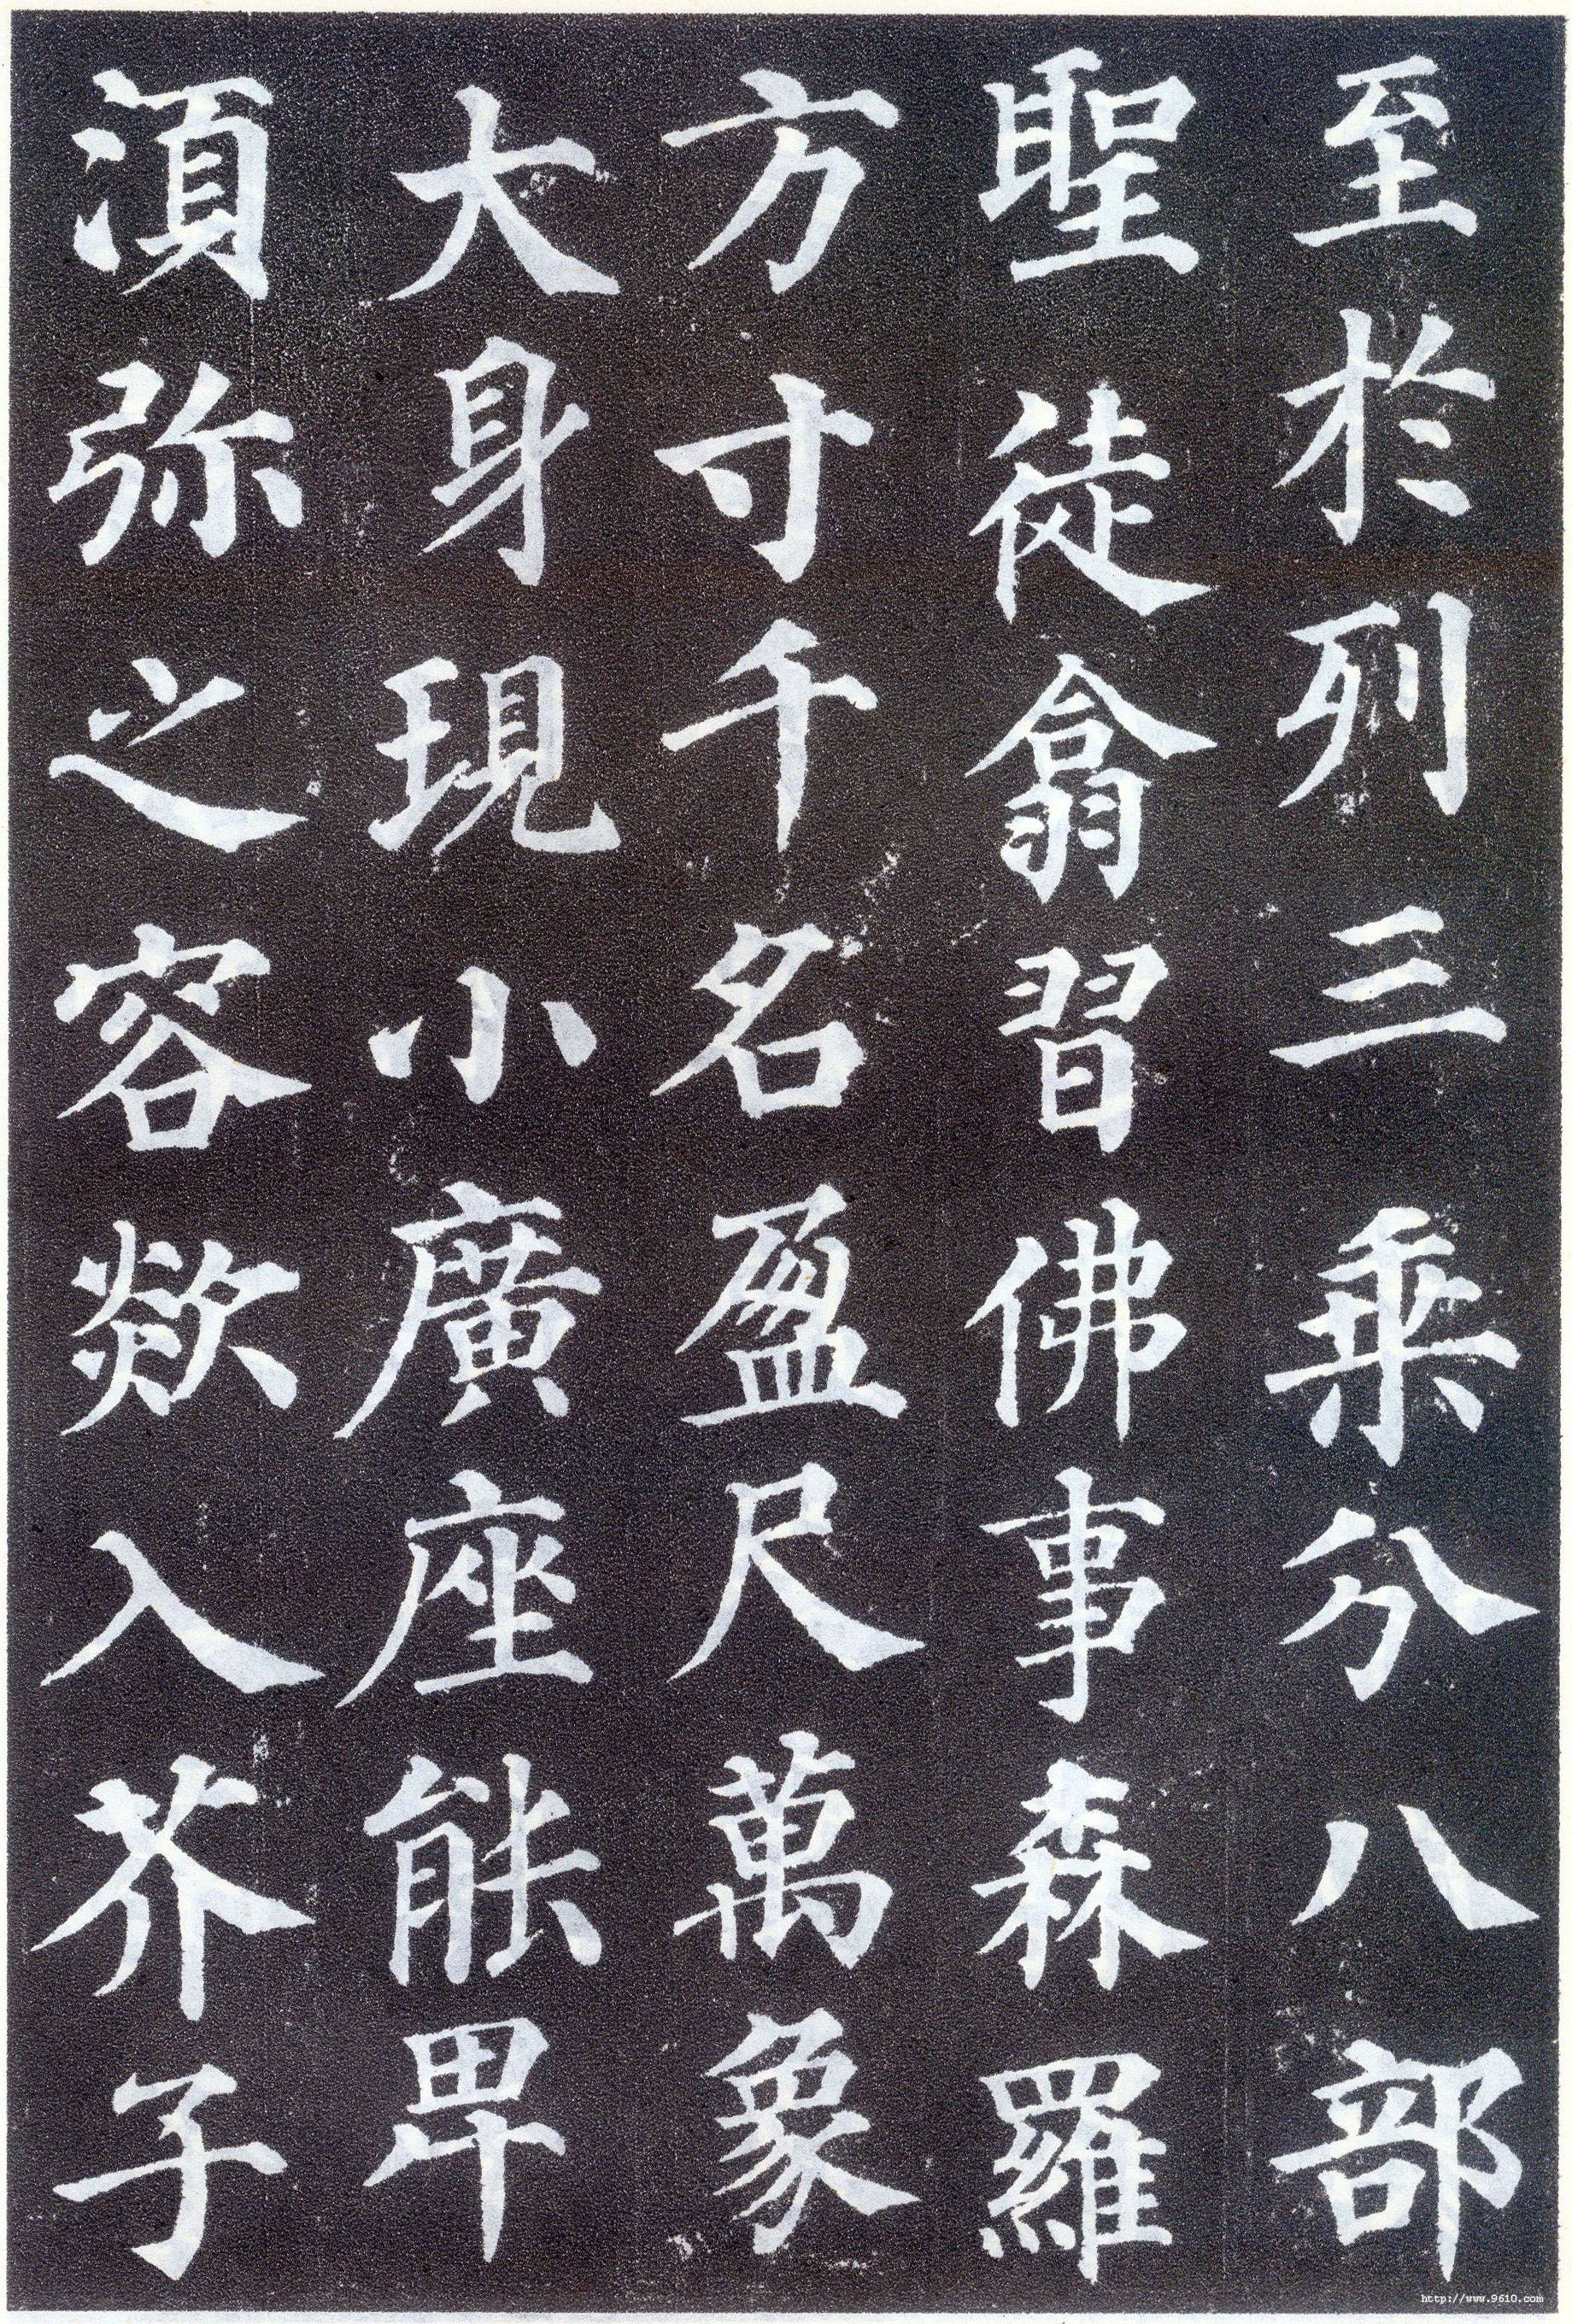 至於列三乘分八部
聖徒翕習佛事森羅
方寸千名盈尺萬象
大身現小廣座能卑
湏弥之容欻入芥子
http://www.9610.com